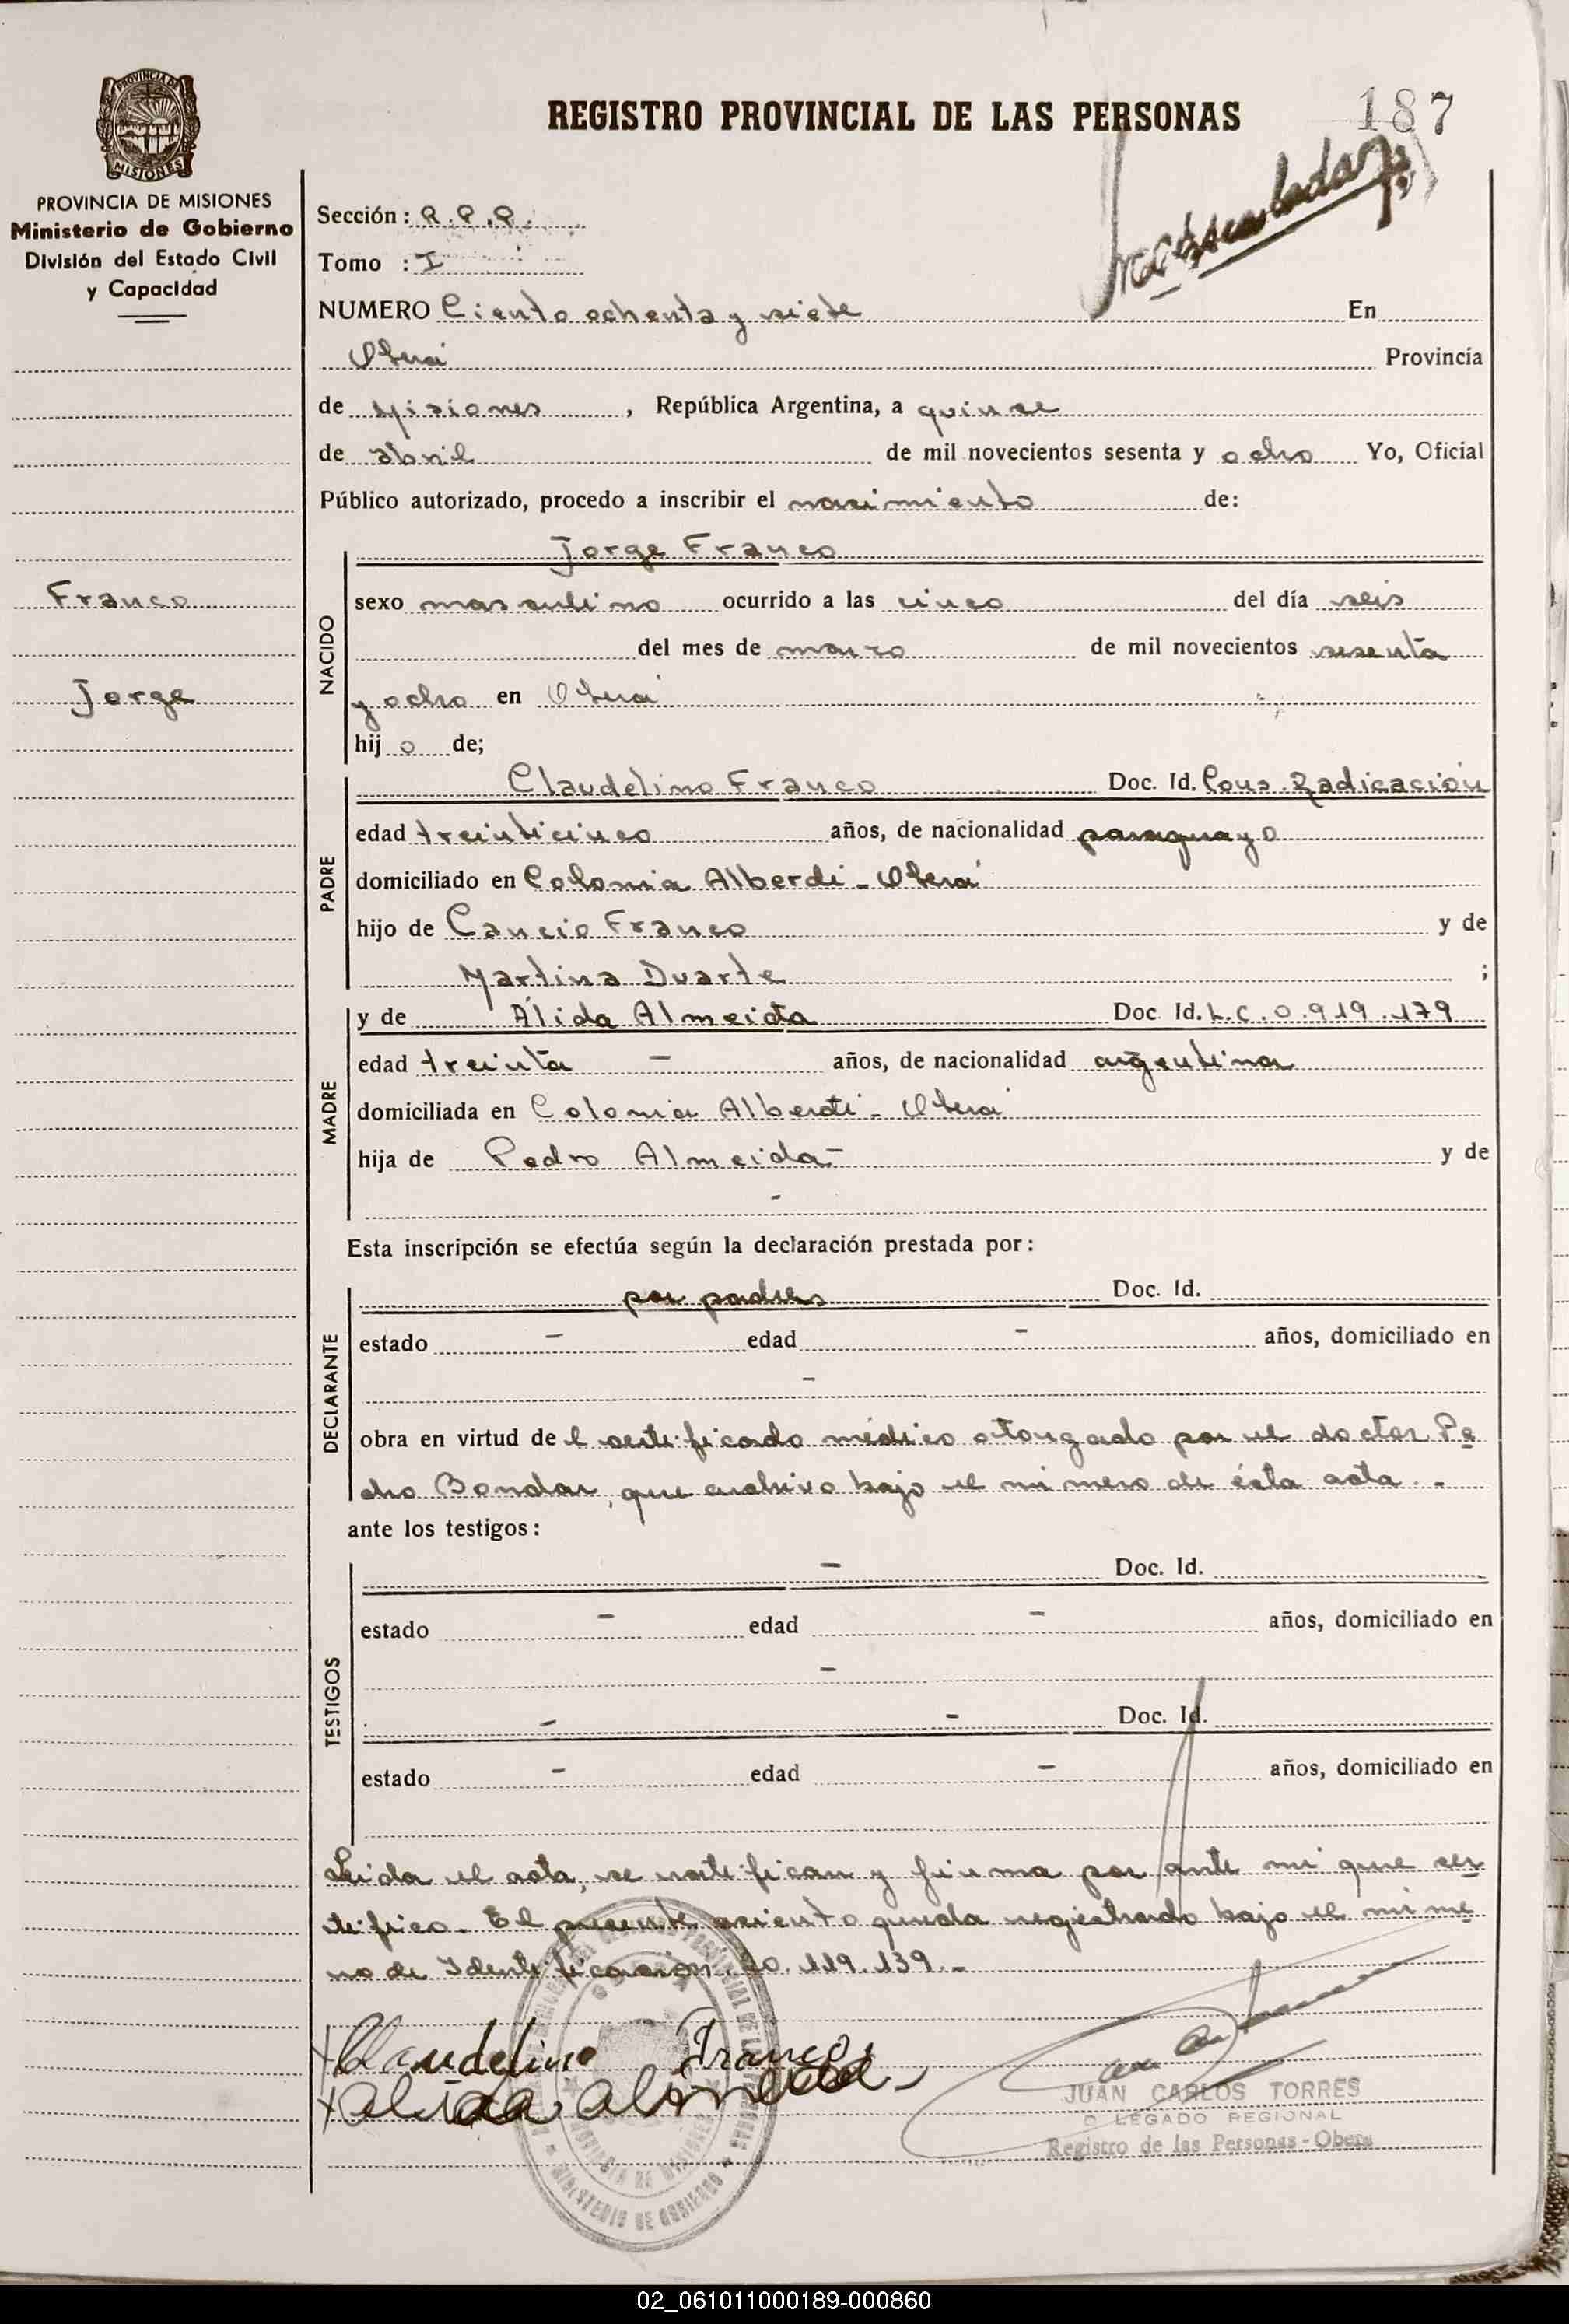 PROVINCIA DE
MISIONES
PROVINCIA DE MISIONES
Ministerio de Gobierno
División del Estado Civil
y Capacidad
Franco
Jorge
REGISTRO PROVINCIAL DE LAS PERSONAS
187
Sección: R.P.P.
Tomo : I
NUMERO Ciento ochenta y siete En
Oberá Provincia
de Misiones, República Argentina, a quince
de abril de mil novecientos sesenta y ocho Yo, Oficial
Público autorizado, procedo a inscribir el nacimiento de:
NACIDO
Jorge Franco
sexo masculino ocurrido a las cinco del día seis
del mes de marzo de mil novecientos sesenta
y ocho en Oberá
hijo de;
PADRE
Claudelino Franco Doc. Id. Cons. Radicación
edad treinticinco años, de nacionalidad paraguayo
domiciliado en Colonia Alberdi - Oberá
hijo de Cancio Franco y de
Martina Duarte ;
MADRE
y de Álida Almeida Doc. Id. L.C. 0.919.179
edad treinta - años, de nacionalidad argentina
domiciliada en Colonia Alberdi - Oberá
hija de Pedro Almeida - y de
-
Esta inscripción se efectúa según la declaración prestada por:
DECLARANTE
por padres Doc. Id.
estado - edad - años, domiciliado en
-
obra en virtud del certificado médico otorgado por el doctor Pe
dro Bondar, que archivo bajo el número de ésta acta.-
ante los testigos:
TESTIGOS
- Doc. Id.
estado - edad - años, domiciliado en
-
- - Doc. Id.
estado - edad - años, domiciliado en
Leida el acta, se ratifican y firma por ante mi que cer
tifico. El presente asiento queda registrado bajo el núme
ro de Identificación 20.119.139.-
Claudelino Franco
Alida Almeida
JUAN CARLOS TORRES
D LEGADO REGIONAL
Registro de las Personas - Obera
PROVINCIA DE MISIONES
MINISTERIO DE GOBIERNO
02_061011000189-000860